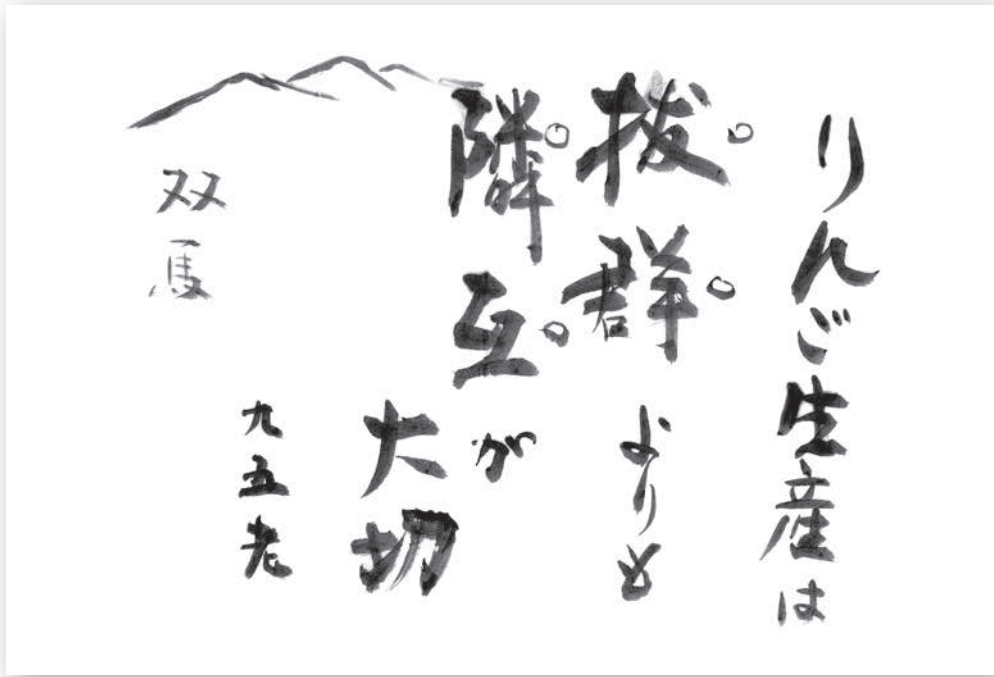 りんご生産は
抜群よりも
隣互が
大切
九五老
双馬